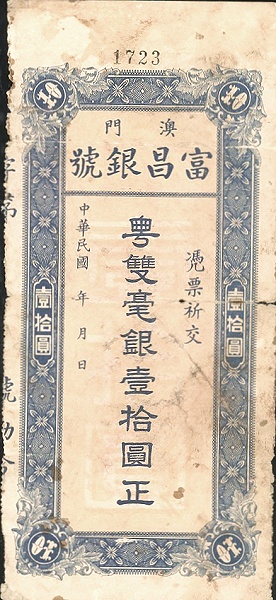 1723
10
10
澳門
富昌銀號
憑票祈交
粵雙毫銀壹拾圓正
中華民國 年 月 日
壹拾圓
壹拾圓
字第
號
10
10